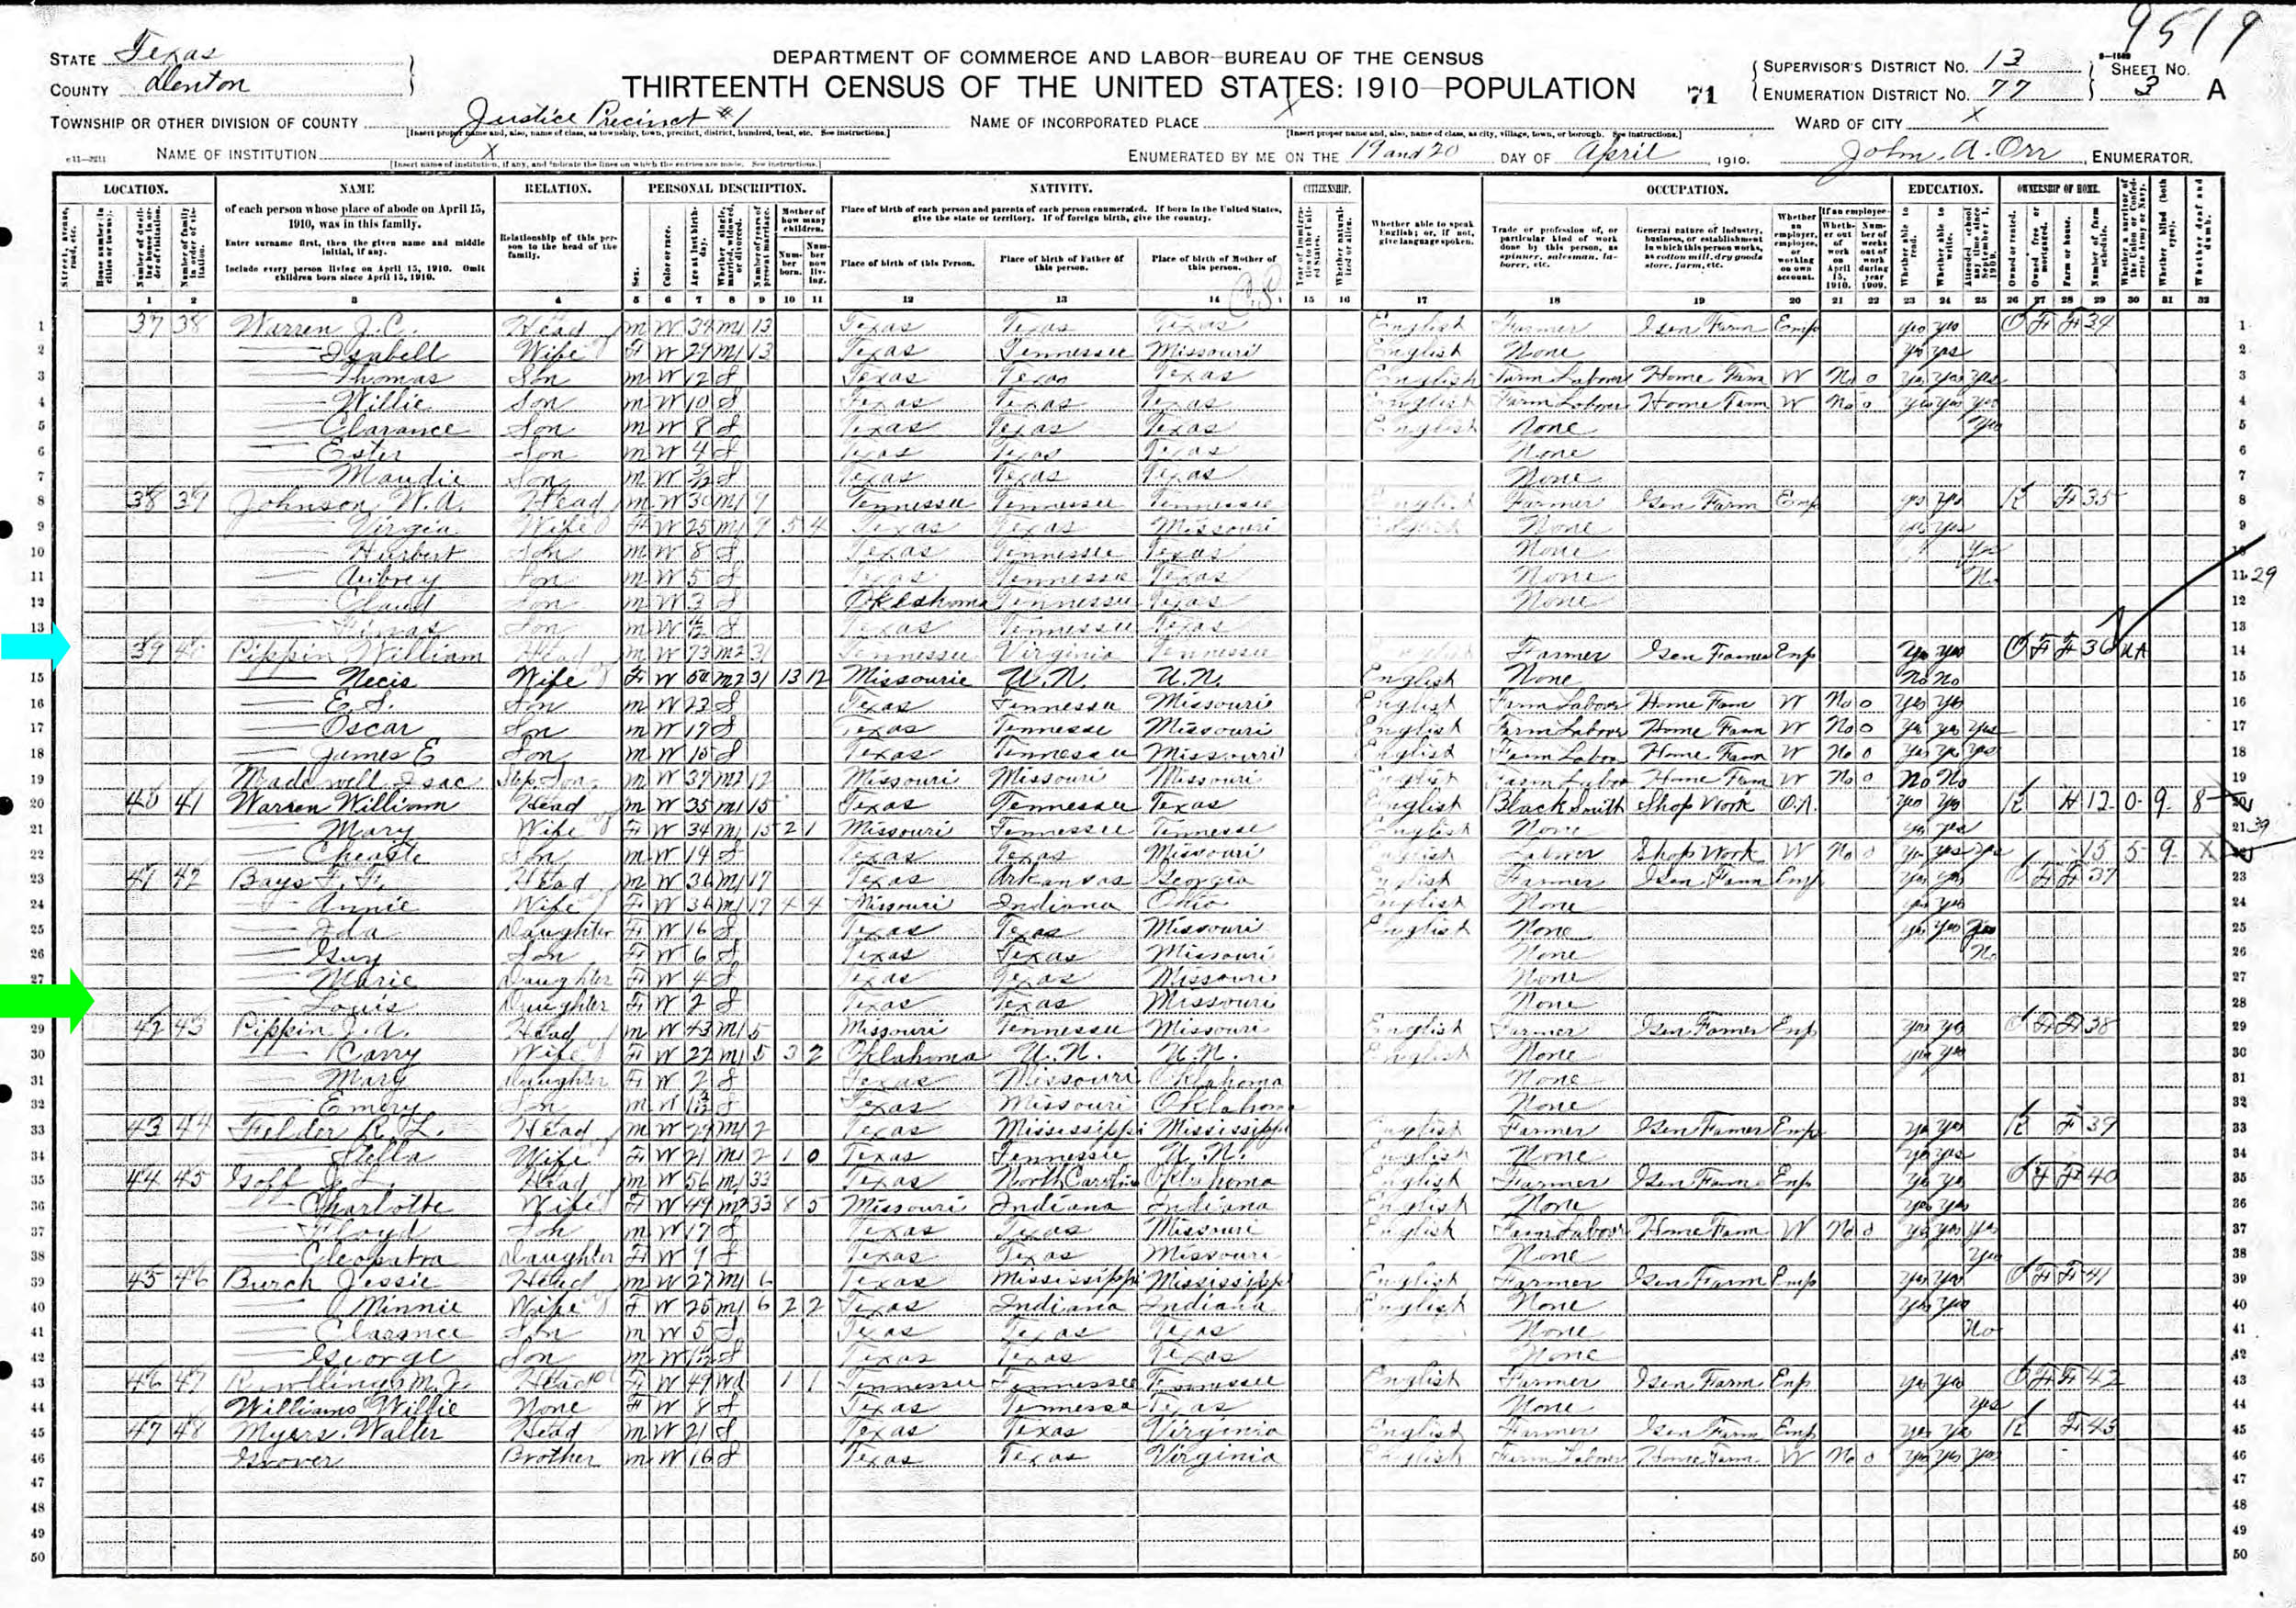 9519
STATE Texas
COUNTY Denton
DEPARTMENT OF COMMERCE AND LABOR—BUREAU OF THE CENSUS
THIRTEENTH CENSUS OF THE UNITED STATES: 1910—POPULATION
71
SUPERVISOR'S DISTRICT No. 13
ENUMERATION DISTRICT No. 77
SHEET No. 3 A
TOWNSHIP OR OTHER DIVISION OF COUNTY Justice Precinct #1
NAME OF INCORPORATED PLACE X
WARD OF CITY X
NAME OF INSTITUTION X
ENUMERATED BY ME ON THE 19 and 20 DAY OF April, 1910. John. A. Orr, ENUMERATOR.
LOCATION. NAME RELATION. PERSONAL DESCRIPTION. NATIVITY. CITIZENSHIP. OCCUPATION. EDUCATION. OWNERSHIP OF HOME.
of each person whose place of abode on April 15, 1910, was in this family.
Enter surname first, then the given name and middle initial, if any.
Include every person living on April 15, 1910. Omit children born since April 15, 1910.
Relationship of this person to the head of the family.
Place of birth of each person and parents of each person enumerated. If born in the United States, give the state or territory. If of foreign birth, give the country.
Place of birth of this Person. Place of birth of Father of this person. Place of birth of Mother of this person.
Whether able to speak English; or, if not, give language spoken.
1 2 3 4 5 6 7 8 9 10 11 12 13 14 15 16 17 18 19 20 21 22 23 24 25 26 27 28 29 30 31 32
1 37 38 Warren J. C. Head m W M1 13 Texas Texas Texas English Farmer Gen Farm Emp yes yes O F F 34
2 Isabell Wife F W 29 M1 13 Texas Tennessee Missouri English None yes yes
3 Thomas Son m W 12 S Texas Texas Texas English Farm Laborer Home Farm W No 0 yes yes yes
4 Willie Son m W 10 S Texas Texas Texas English Farm Laborer Home Farm W No 0 yes yes yes
5 Clarance Son m W 8 S Texas Texas Texas English None yes
6 Ester Son m W 4 S Texas Texas Texas None
7 Maudie Son m W S Texas Texas Texas None
8 38 39 Johnson, W. A. Head m W 30 M1 9 Tennessee Tennessee Tennessee English Farmer Gen Farm Emp yes yes R F 35
9 Virgia Wife F W 25 M1 9 5 4 Texas Texas Missouri English None yes yes
10 Hurbert Son m W 8 S Texas Tennessee Texas None yes
11 Aubrey Son m W 5 S Texas Tennessee Texas None No 29
12 Claud Son m W 3 S Oklahoma Tennessee Texas None
13 Son m W S Texas Tennessee Texas
14 39 40 Pippin William Head m W 73 M2 31 Tennessee Virginia Tennessee Farmer Gen Farmer Emp yes yes O F F 36 UA
15 Necis Wife F W M2 31 13 12 Missourie U.N. U.N. English None No No
16 E. S. Son m W 23 S Texas Tennessee Missouri English Farm Labor Home Farm W No 0 yes yes
17 Oscar Son m W 17 S Texas Tennesse Missouri English Farm Labor Home Farm W No 0 yes yes yes
18 James E Son m W 15 S Texas Tennessee Missourri English Farm Labor Home Farm W No 0 yes yes yes
19 Madewell Isac Step Son m W M2 12 Missouri Missouri Missouri English Farm Labor Home Farm W No 0 No No
20 40 41 Warren William Head m W 35 M1 15 Texas Tennessee Texas English Black Smith Shop Work O.A. yes yes R H 12 0 9 8
21 Mary Wife F W 34 M1 15 2 1 Missouri Tennessee Tennesse English None yes yes 39
22 Son m W 14 S Texas Texas Missouri English Laborer Shop Work W No 0 yes yes yes 15 5 9 X
23 41 42 Bays F. F. Head m W 36 M1 17 Texas Arkansas Georgia English Farmer Gen Farm Emp yes yes O F F 37
24 Annie Wife F W 36 M1 17 4 4 Missouri Indiana Ohio English None yes yes
25 Ida Daughter F W 16 S Texas Texas Missouri English None yes yes yes
26 Guy Son F W 6 S Texas Texas Missouri None No
27 Marie Daughter F W 4 S Texas Texas Missouri None
28 Louis Daughter F W 2 S Texas Texas Missouri None
29 42 43 Pippin J. A. Head m W 43 M1 5 Missouri Tennessee Missouri English Farmer Gen Farmer Emp yes yes O F F 38
30 Carry Wife F W 22 M1 5 3 2 Oklahoma U.N. U.N. English None yes yes
31 Mary Daughter F W 2 S Texas Missouri Oklahoma None
32 Emery Son m W S Texas Missouri Oklahoma None
33 43 44 Felder R. L. Head m W 29 M1 2 Texas Mississippi Mississippi English Farmer Gen Farmer Emp yes yes R F 39
34 Stella Wife F W 21 M1 2 1 0 Texas Tennessee U.N. English None yes yes
35 44 45 Goff J. L. Head m W 56 M1 33 Texas North Carolina Oklahoma English Farmer Gen Farm Emp yes yes O F F 40
36 Charlotte Wife F W 49 M2 33 8 5 Missouri Indiana Indiana English None yes yes
37 Floyd Son m W 17 S Texas Texas Missouri English Farm Labor Home Farm W No 0 yes yes yes
38 Cleopatra Daughter F W 9 S Texas Texas Missouri None yes
39 45 46 Burch Jessie Head m W 27 M1 6 Texas Mississippi Mississippi English Farmer Gen Farm Emp yes yes O F F 41
40 Minnie Wife F W 25 M1 6 2 2 Texas Indiana Indiana English None yes yes
41 Clarence Son m W 5 S Texas Texas Texas None No
42 George Son m W S Texas Texas Texas None
43 46 47 Rowllings M. J. Head F W 49 Wd 1 1 Tennessee Tennessee Tennessee English Farmer Gen Farm Emp yes yes O F F 42
44 Williams Willie None F W 8 S Texas Tennessa Texas None yes
45 47 48 Myers. Walter Head m W 21 S Texas Texas Virginia English Farmer Gen Farm Emp yes yes R F 43
46 Grover Brother m W 16 S Texas Texas Virginia English Farm Laborer Home Farm W No 0 yes yes yes
47
48
49
50